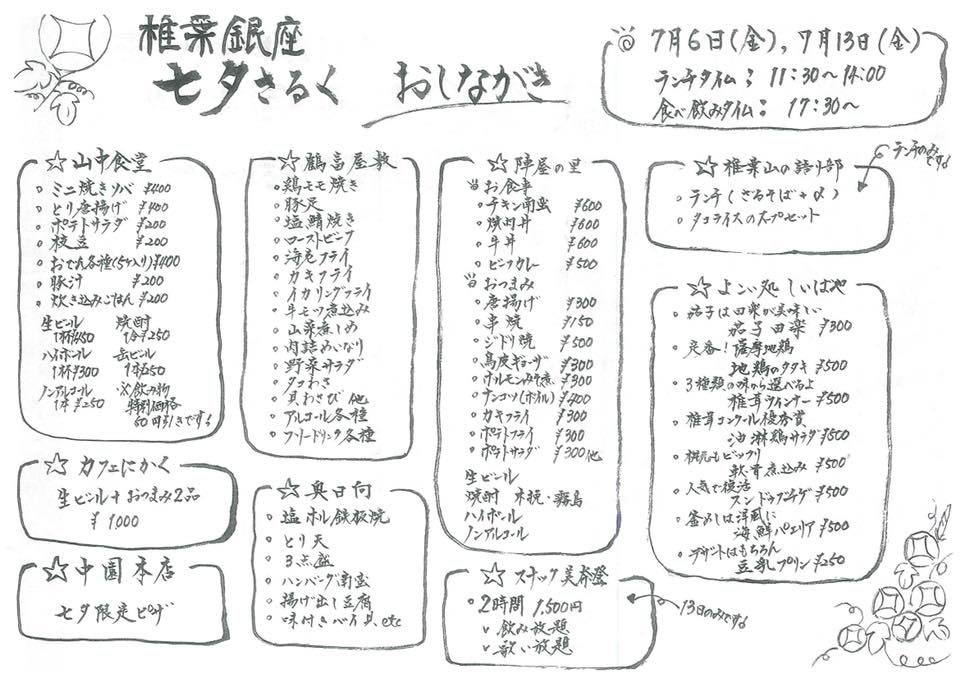 椎葉銀座
七夕さるく おしながき
7月6日(金), 7月13日(金)
ランチタイム: 11:30〜14:00
食べ飲みタイム: 17:30〜
☆山中食堂
・ミニ焼きソバ ¥400
・とり唐揚げ ¥400
・ポテトサラダ ¥200
・枝豆 ¥200
・おでん各種(5ヶ入り)¥400
・豚汁 ¥200
・炊き込みごはん ¥200
生ビール 焼酎
1杯¥450 1合¥250
ハイボール 缶ビール
1杯¥300 1本¥250
ノンアルコール ※飲み物
1本¥250 特別価格
50円引きです!
☆カフェにかく
生ビール+おつまみ2品
¥1000
☆中園本店
七夕限定ピザ
☆鶴富屋敷
・鶏モモ焼き
・豚足
・塩鯖焼き
・ローストビーフ
・海老フライ
・カキフライ
・イカリングフライ
・牛モツ煮込み
・山菜煮しめ
・肉詰めいなり
・野菜サラダ
・タコわさ
・貝わさび 他
・アルコール各種
・フリードリンク各種
☆奥日向
・塩ホル鉄板焼
・とり天
・3点盛
・ハンバーグ南蛮
・揚げ出し豆腐
・味付きバイ貝etc
☆陣屋の里
お食事
・チキン南蛮 ¥600
・焼肉丼 ¥600
・牛丼 ¥600
・ビーフカレー ¥500
おつまみ
・唐揚げ ¥300
・串焼 ¥150
・ジドリ焼 ¥500
・鳥皮ギョーザ ¥300
・ホルモンみそ煮 ¥300
・ナンコツ(ボイル) ¥400
・カキフライ ¥300
・ポテトフライ ¥300
・ポテトサラダ ¥300他
生ビール
焼酎 木挽・霧島
ハイボール
ノンアルコール
☆スナック美芥登
・2時間 1,500円
飲み放題
歌い放題
13日のみです!
☆椎葉山の語り部
ランチのみです!
・ランチ(ざるそば+α)
・タコライスのスープセット
☆よこい処しいばや
・茄子は田楽が美味しい
茄子田楽 ¥300
・定番!薩摩地鶏
地鶏のタタキ ¥500
・3種類の味から選べるよ
椎茸ウインナー ¥500
・椎茸コンクール優秀賞
油淋鶏サラダ ¥500
・桃元もビックリ
軟骨煮込み ¥500
・人気で復活
スンドゥブチゲ ¥500
・釜めしは洋風に
海鮮パエリア ¥500
・デザートはもちろん
豆乳プリン ¥250